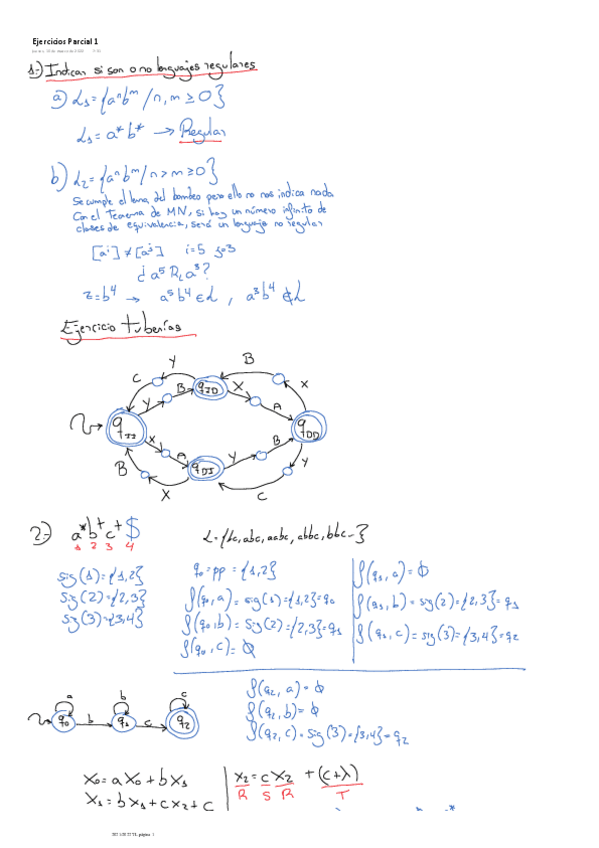 Ejercicios Parcial 1
1-) Indicar si son o no lenguajes regulares
a) L₁={aⁿbᵐ/n,m≥0}
L₁=a*b* → Regular
b) L₂={aⁿbᵐ/n>m≥0}
Se cumple el lema del bombeo pero ello no nos indica nada
Con el Teorema de MN, si hay un número infinito de
clases de equivalencia, será un lenguaje no regular
[aⁱ]≠[aʲ] i=5 j=3
¿a⁵ R_L a³?
z=b⁴ → a⁵b⁴∈L, a³b⁴∉L
Ejercicio tuberías
Y B
C B q_ID X X
Y A
q_II q_DD
X A Y B
B q_DI Y
X C
2-) a*b⁺c⁺$ L={bc,abc,aabc,abbc,bbc-}
1 2 3 4
sig(1)={1,2}
sig(2)={2,3}
sig(3)={3,4}
q₀=pp={1,2}
f(q₀,a)=sig(1)={1,2}=q₀
f(q₀,b)=sig(2)={2,3}=q₁
f(q₀,c)=∅
f(q₁,a)=∅
f(q₁,b)=sig(2)={2,3}=q₁
f(q₁,c)=sig(3)={3,4}=q₂
a b c
q₀ b q₁ c q₂
f(q₂,a)=∅
f(q₂,b)=∅
f(q₂,c)=sig(3)={3,4}=q₂
X₀=aX₀+bX₁
X₁=bX₁+cX₂+c
X₂=cX₂+(c+λ)
R S R T